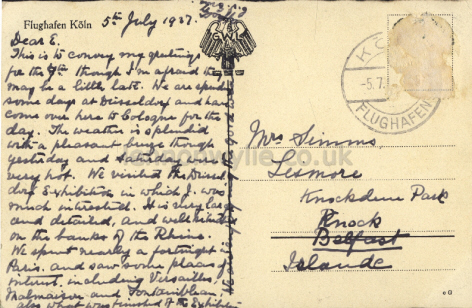 Flughafen Köln
5th July 1937.
Dear E.
This is to convey my greetings
for the 9th though I'm afraid they
may be a little late. We are spending
some days at Düsseldorf and have
come over here to Cologne for the
day. The weather is splendid
with a pleasant breeze though
yesterday and
very hot. We visited the Düssel
dorf Exhibition in which I was
much interested. It is very large
and detailed, and well
on the banks of the Rhine.
We spent nearly a fortnight in
Paris and saw some places of
interest, including Versailles,
Malmaison and Fontainebleau
also what was finished of the Exhibition
Mrs Simms,
Lesmore
Knockdene Park
Knock
Belfast
Islande
-5.7.
FLUGHAFEN